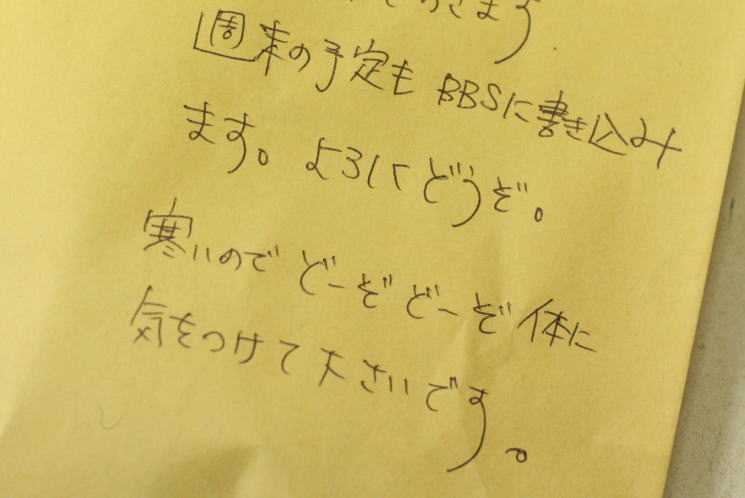 きます
週末の予定もBBSに書き込み
ます。よろしくどうぞ。
寒いのでどーぞどーぞ体に
気をつけて下さいです。